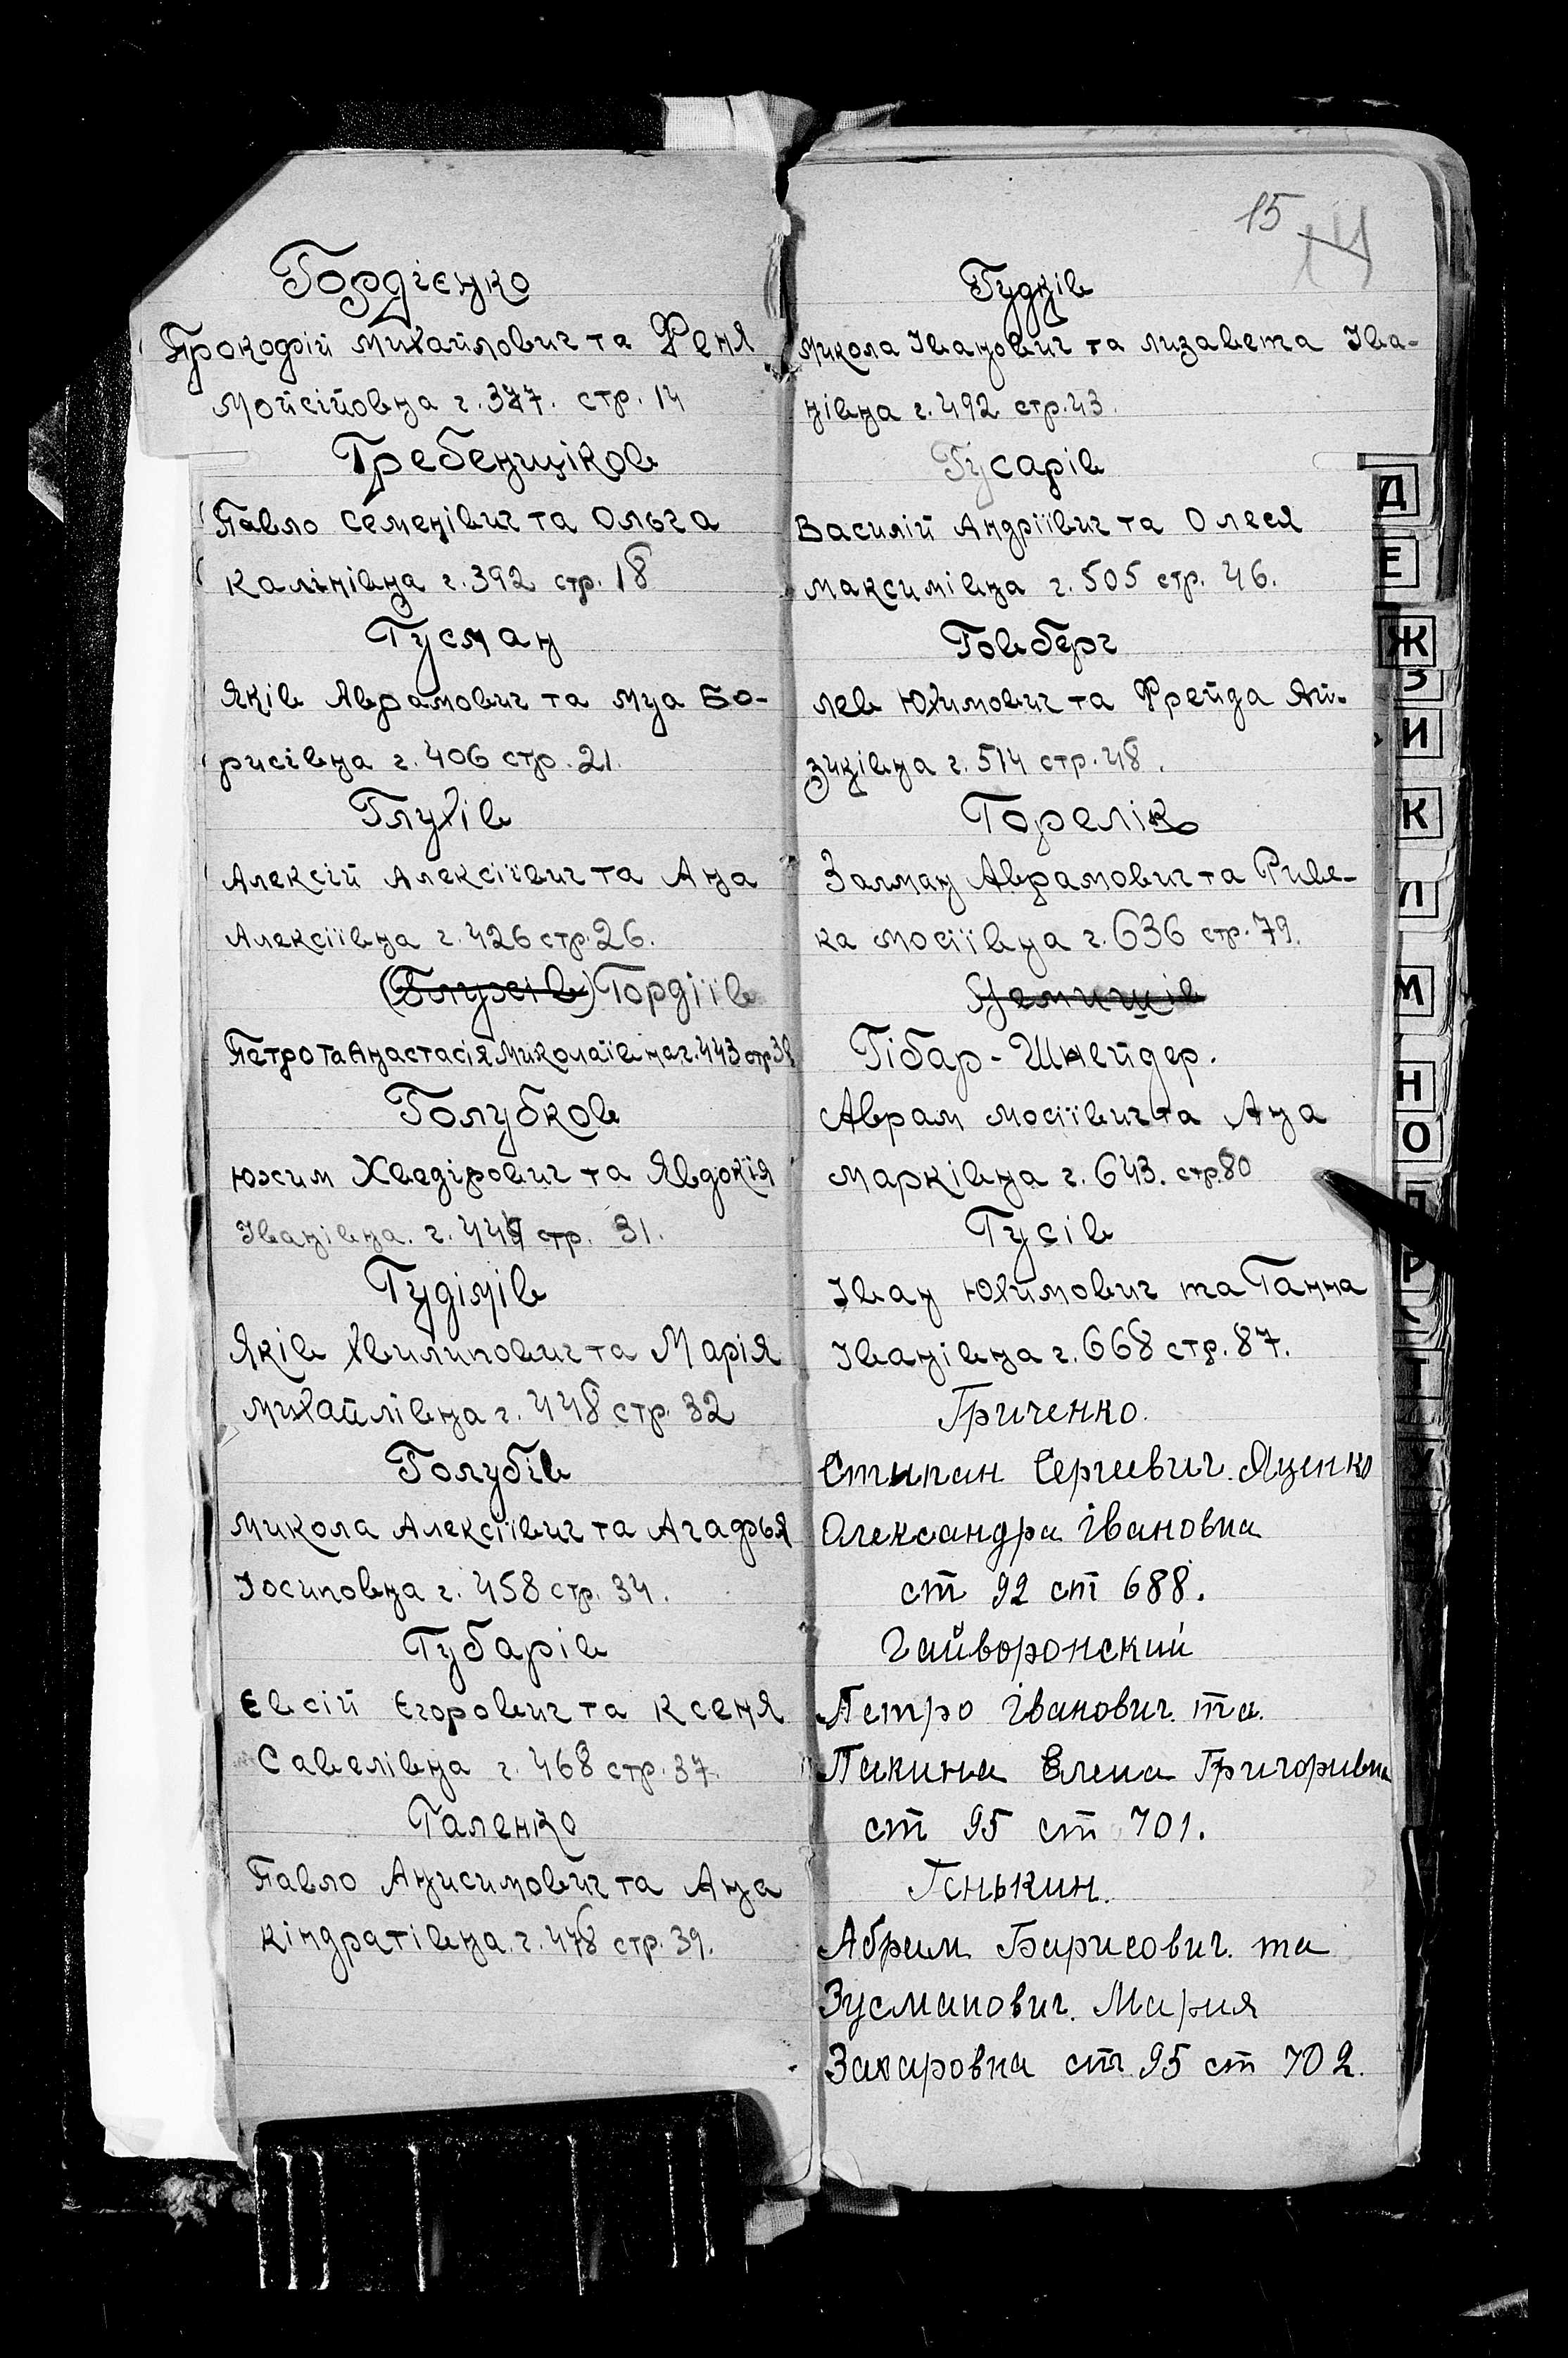 Гордієнко
Прокофій Михайлович та Феня
Мойсійовна г. 377. стр. 14
Гребенщіков
Павло Семенівич та Ольга
Калінівна г. 392 стр. 18
Гусман
Яків Аврамович та Муа Бо-
рисівна г. 406 стр. 21.
Глухів
Алексій Алексіївич та Ана
Алексіївна г. 426 стр. 26.
Гордіїв
Петро та Анастасія Миколаївна г. 443 стр
Голубков
Юхим Хведірович та Явдокія
Іванівна. г. стр. 31.
Гудімів
Яків Хвилипович та Марія
Михайлівна г. 448 стр. 32
Голубів
Микола Алексіївич та Агафья
Іосиповна г. 458 стр. 34.
Губарів
Євсій Єгорович та Ксеня
Савелівна г. 468 стр. 37.
Галенко
Павло Анисимович та Ана
Кіндратівна. г. 478 стр. 39.
15
14
Гудзів
Микола Іванович та Лизавета Іва-
нівна г. 492 стр. 43.
Гусарів
Василій Андріївич та Олеся
Максимівна г. 505 стр. 46.
Говберг
Лев Юхимович та Фрейда Ай-
зиківна г. 514 стр. 48.
Горелік
Залман Аврамович та Риве-
ка Мосіївна г. 636 стр. 79.
Гібар-Шнейдер.
Аврам Мосіївич та Ана
Марківна г. 643. стр. 80
Гусів
Іван Юхимович та Ганна
Іванівна г. 668 стр. 87.
Гриченко.
Стипан Сергиевич. Яценко
Олександра Івановна
ст 92 ст 688.
Гайворонский
Петро Іванович. та.
Пакина Елена Григоривна
ст 95 ст 701.
Генькин.
Абрам Барисович. та
Зусманович. Мария
Захаровна ст. 95 ст 702.
Д
Е
Ж
З
И
К
Л
М
Н
О
П
Р
Т
У